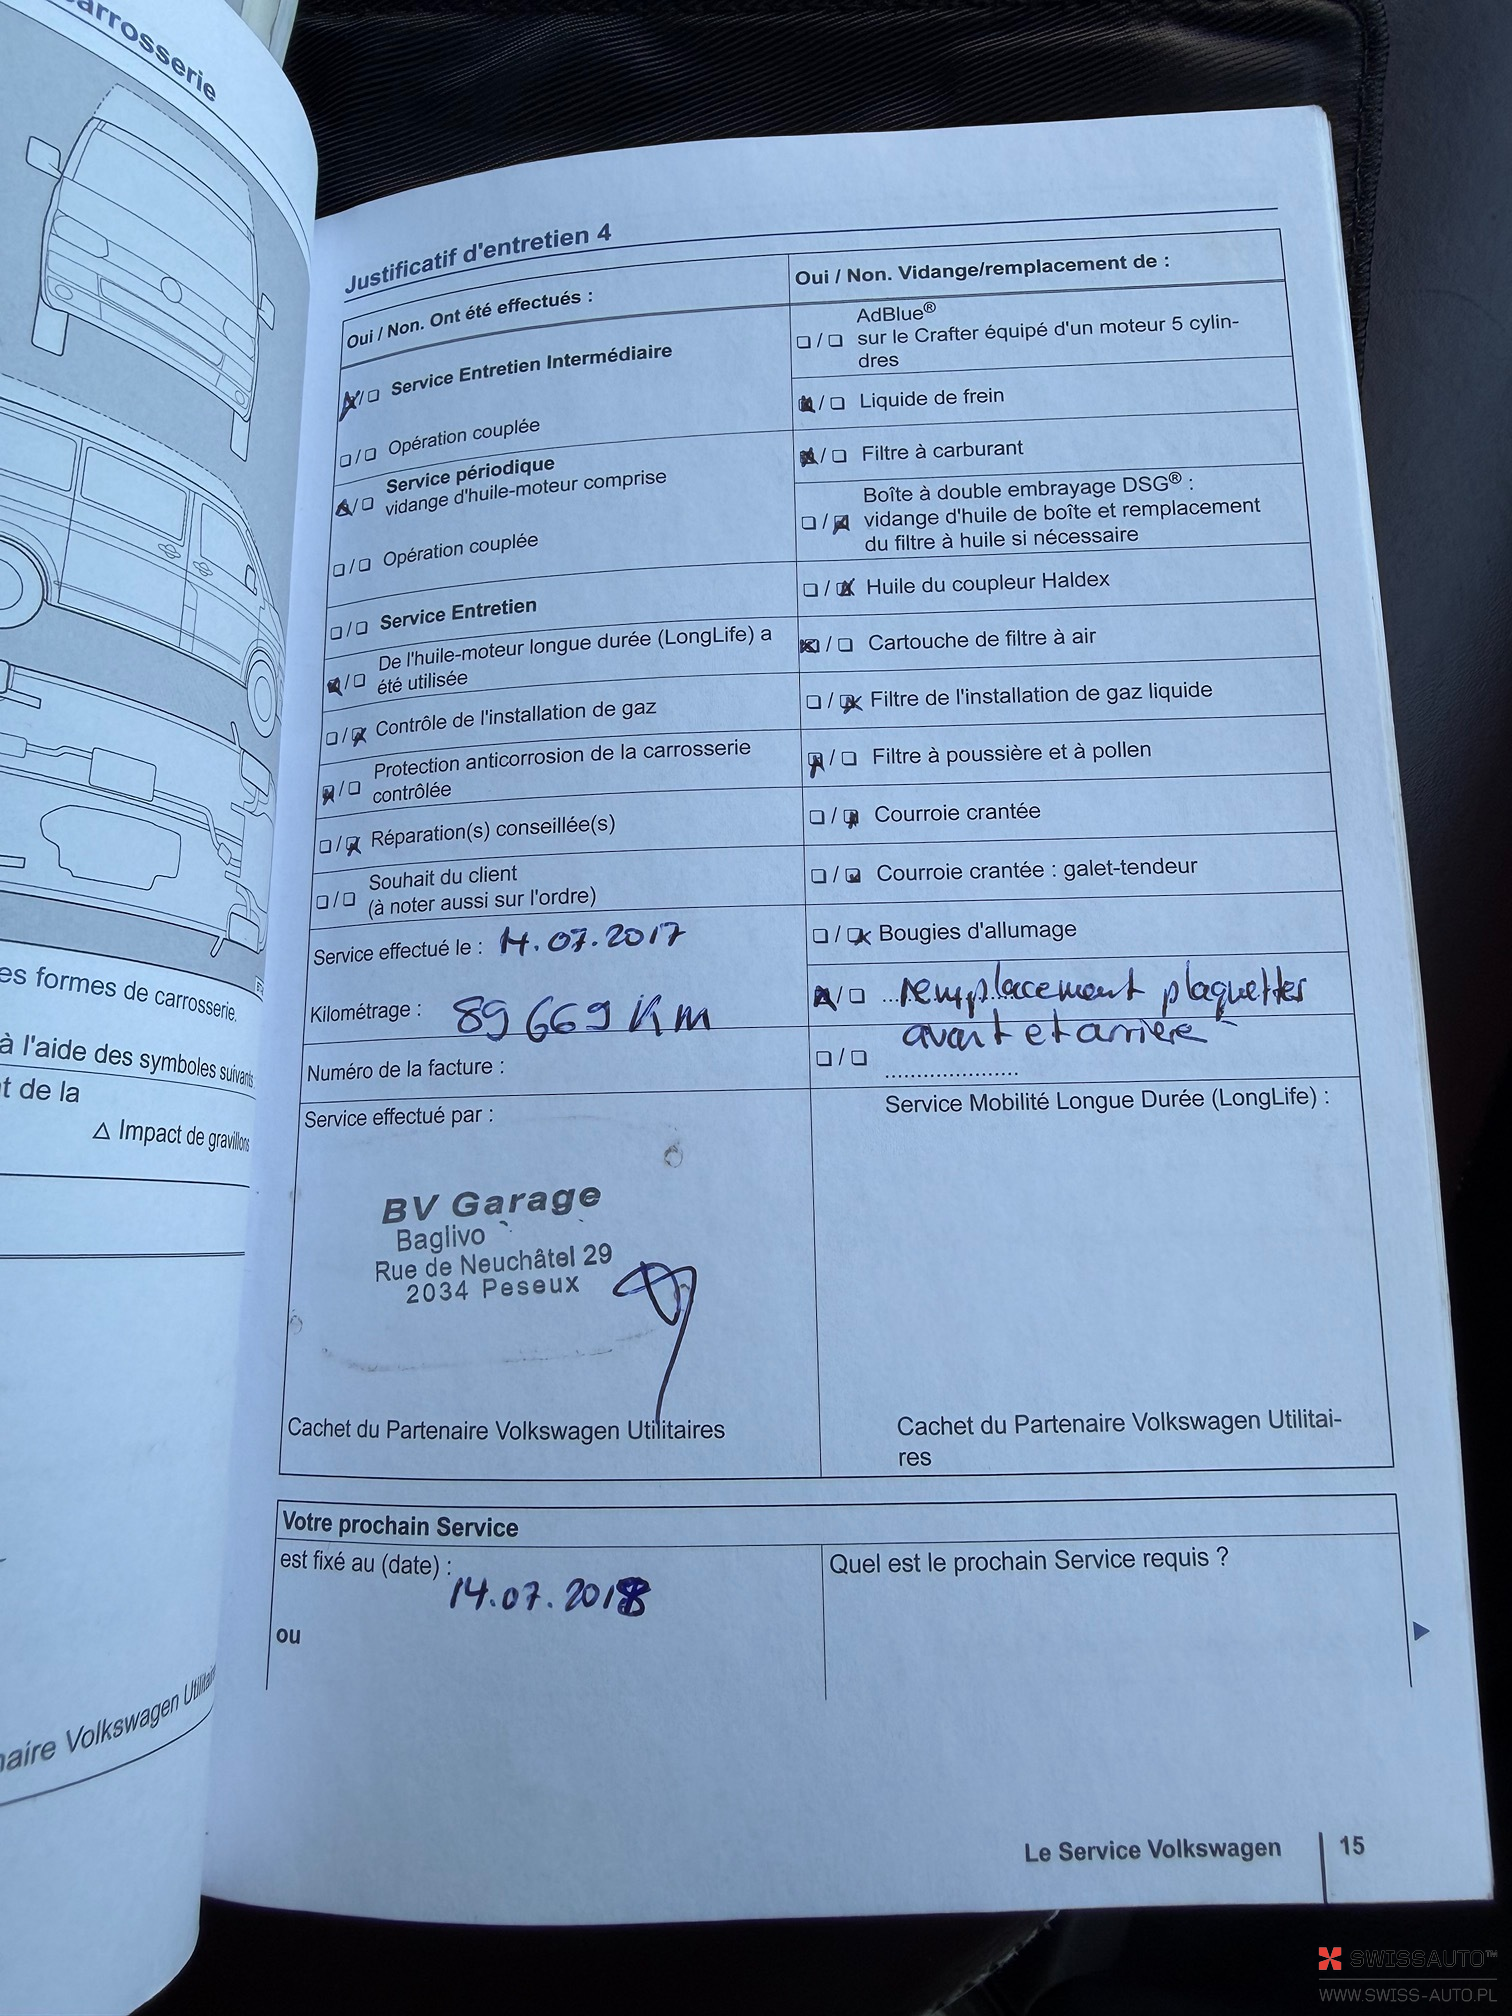 carrosserie
es formes de carrosserie.
à l'aide des symboles suivants
t de la
△ Impact de gravillons
naire Volkswagen Utilitair
Justificatif d'entretien 4
Oui / Non. Ont été effectués :
☒/❏ Service Entretien Intermédiaire
❏/❏ Opération couplée
☒/❏ Service périodique
vidange d'huile-moteur comprise
❏/❏ Opération couplée
❏/❏ Service Entretien
☒/❏ De l'huile-moteur longue durée (LongLife) a
été utilisée
❏/☒ Contrôle de l'installation de gaz
☒/❏ Protection anticorrosion de la carrosserie
contrôlée
❏/☒ Réparation(s) conseillée(s)
❏/❏ Souhait du client
(à noter aussi sur l'ordre)
Service effectué le : 14.07.2017
Kilométrage : 89669 Km
Numéro de la facture :
Service effectué par :
BV Garage
Baglivo
Rue de Neuchâtel 29
2034 Peseux
Cachet du Partenaire Volkswagen Utilitaires
Oui / Non. Vidange/remplacement de :
AdBlue®
❏/❏ sur le Crafter équipé d'un moteur 5 cylin-
dres
☒/❏ Liquide de frein
☒/❏ Filtre à carburant
Boîte à double embrayage DSG® :
❏/☒ vidange d'huile de boîte et remplacement
du filtre à huile si nécessaire
❏/☒ Huile du coupleur Haldex
☒/❏ Cartouche de filtre à air
❏/☒ Filtre de l'installation de gaz liquide
☒/❏ Filtre à poussière et à pollen
❏/☒ Courroie crantée
❏/☒ Courroie crantée : galet-tendeur
❏/☒ Bougies d'allumage
☒/❏ remplacement plaquettes
❏/❏ avant et arrière
Service Mobilité Longue Durée (LongLife) :
Cachet du Partenaire Volkswagen Utilitai-
res
Votre prochain Service
est fixé au (date) :
14.07.2018
ou
Quel est le prochain Service requis ?
Le Service Volkswagen 15
SWISSAUTO™
WWW.SWISS-AUTO.PL